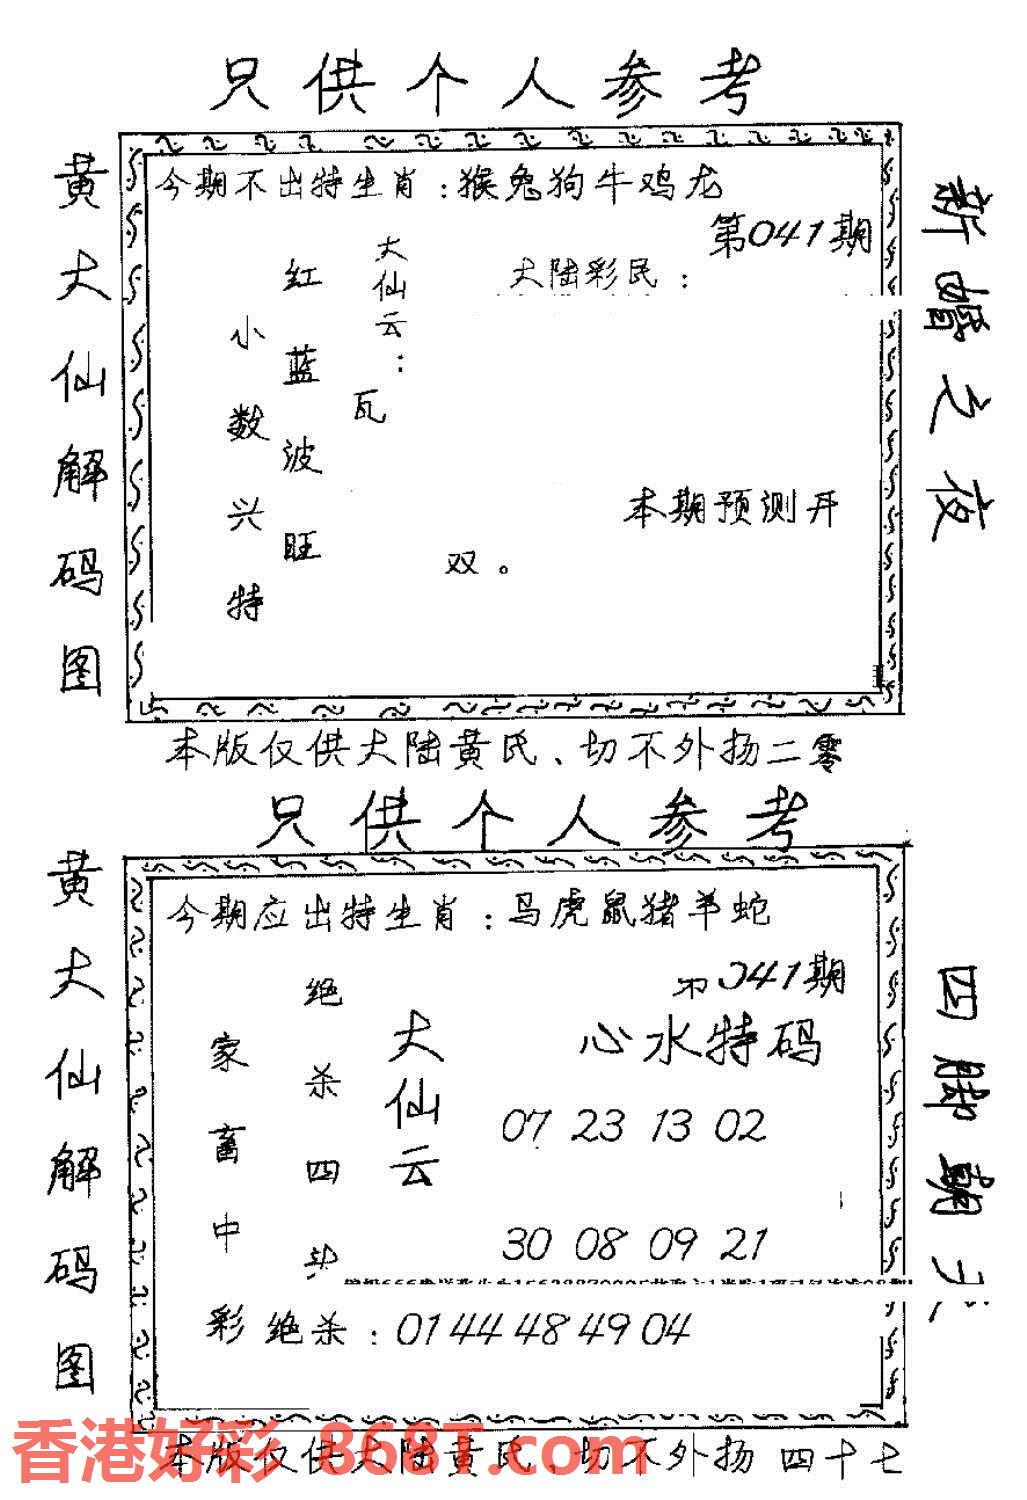 只供个人参考
黄大仙解码图
今期不出特生肖：猴兔狗牛鸡龙
第041期
大陆彩民：
大仙云：
瓦
红蓝波旺
小数兴特
本期预测开
双。
新婚之夜
本版仅供大陆黄氏、切不外扬二零
只供个人参考
黄大仙解码图
今期应出特生肖：马虎鼠猪羊蛇
041期
心水特码
大仙云
绝杀四
家畜中
07 23 13 02
30 08 09 21
彩绝杀：01 44 48 49 04
四脚朝天
香港好彩 868T.com
本版仅供大陆黄氏、切不外扬 四十七